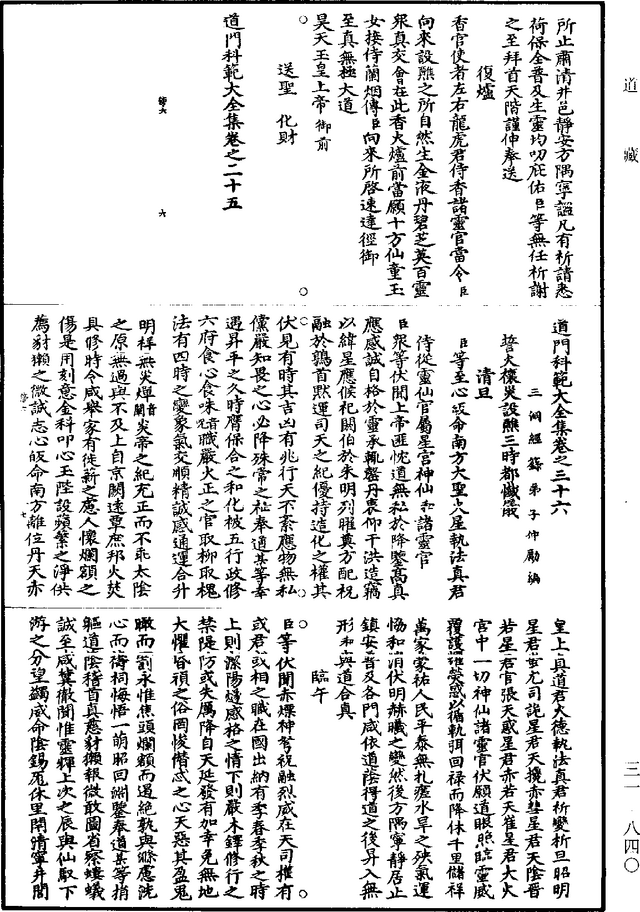 道藏
所止肅清井邑靜安方隅寧謐凡有祈請悉
荷保全普及生靈均叨庇佑臣等無任祈謝
之至拜首天階謹伸奉送
復爐
香官使者左右龍虎君侍香諸靈官當令臣
向來設醮之所自然生金液丹碧芝英百靈
衆真交會在此香火爐前當願十方仙童玉
女接侍蘭烟傳臣向來所啓速達徑御
至真無極大道
昊天玉皇上帝御前
送聖 化財
道門科範大全集卷之二十五
道門科範大全集卷之二十六
三洞經籙弟子仲勵編
誓火禳災設醮三時都懺儀
清旦
臣等至心皈命南方大聖八星執法真君
侍從靈仙官屬星宮神仙和諸靈官
臣衆等伏聞上帝匪忱道無私於降鑒高真
應感誠自格於靈承輒罄丹衷仰干洪造竊
以緯星應候祀閼伯於朱明列曜奠方配祝
融於鶉首默運司天之紀優持造化之權其
伏見有時其吉凶有兆行天不紊應物無私
儻嚴知畏之心必降殊常之祉奉道某等幸
遇昇平之久時膺保合之和化被五行政修
六府食心食味職嚴火正之官取柳取槐
法有四時之變象氣交順精誠感通運合升
明祥無炎燀音闡炎帝之紀充正而不乖太陰
之原無過與不及上自京闕逮覃庶邦火焚
具修時令咸舉家有徙薪之慮人懷爛額之
傷是用刻意金科叩心玉陛設蘋蘩之淨供
薦豺獺之微誠志心皈命南方離位丹天赤
皇上真道君大德執法真君析變析旦昭明
星君蚩尤司詭星君天攙赤彗星君天陰晉
若星君官張天惑星君赤若天崔星君大火
宮中一切神仙諸靈官伏願道眼照臨靈威
覆護熒惑以循軌弭回祿而降休千里儲祥
萬家蒙祐人民平泰無札瘥水旱之殃氣運
協和消伏明赫曦之變然後方隅寧靜居止
鎮安普及各門咸依道蔭得道之後昇入無
形和與道合真
臨午
臣等伏聞赤熛神弩祝融烈威在天司權有
或君或相之職在國出納有季春季秋之時
上則潔陽遂感格之情下則嚴木鐸修行之
禁隄防或失厲降自天延發有加幸免無地
大懼昏頑之俗罔悛僭忒之心天惡其盈鬼
瞰而劉永惟焦頭爛額而遇絕孰與滌慮洗
心而禱祠悔悟一萌昭回䌷鑒奉道某等捎
軀道蔭稽首真慈豺獺報微敢圖省察螻蟻
誠至咸冀徹聞惟靈輝上次之辰與仙馭下
游之分望蠲威命陰錫蔭休里閈清寧井閭
三一一八四〇